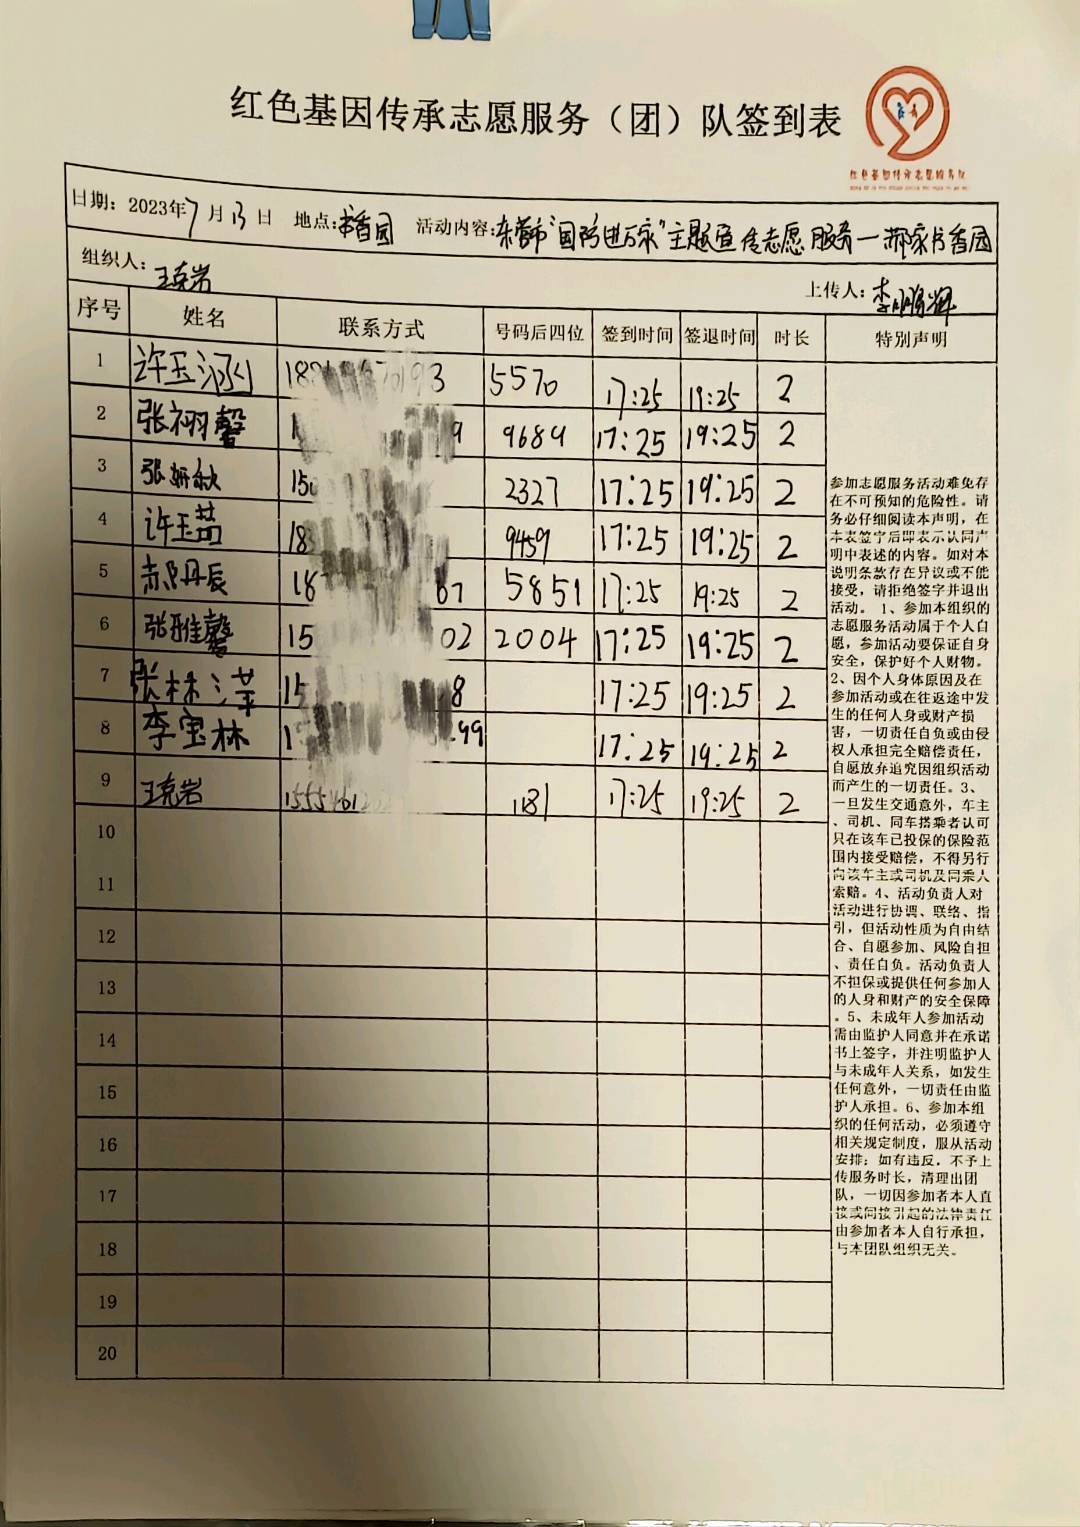 红色基因传承志愿服务（团）队签到表
红色基因传承志愿服务队
日期：2023年7月13日 地点：书香园 活动内容：东营市“国防进万家”主题宣传志愿服务—郝家书香园
组织人：王克岩 上传人：李鹏辉
序号 姓名 联系方式 号码后四位 签到时间 签退时间 时长 特别声明
1 许玉涵 5570 17:25 19:25 2
2 张栩馨 9689 17:25 19:25 2
3 张妍秋 2327 17:25 19:25 2
4 许玉菡 9459 17:25 19:25 2
5 郝丹辰 5851 17:25 19:25 2
6 张雅馨 2004 17:25 19:25 2
7 张林萍 17:25 19:25 2
8 李宝林 17:25 19:25 2
9 王克岩 1181 17:25 19:25 2
10
11
12
13
14
15
16
17
18
19
20
参加志愿服务活动难免存
在不可预知的危险性。请
务必仔细阅读本声明，在
本表签字后即表示认同声
明中表述的内容。如对本
说明条款存在异议或不能
接受，请拒绝签字并退出
活动。 1、参加本组织的
志愿服务活动属于个人自
愿，参加活动要保证自身
安全，保护好个人财物。
2、因个人身体原因及在
参加活动或在往返途中发
生的任何人身或财产损
害，一切责任自负或由侵
权人承担完全赔偿责任，
自愿放弃追究因组织活动
而产生的一切责任。3、
一旦发生交通意外，车主
、司机、同车搭乘者认可
只在该车已投保的保险范
围内接受赔偿，不得另行
向该车主或司机及同乘人
索赔。4、活动负责人对
活动进行协调、联络、指
引，但活动性质为自由结
合、自愿参加、风险自担
、责任自负。活动负责人
不担保或提供任何参加人
的人身和财产的安全保障
。5、未成年人参加活动
需由监护人同意并在承诺
书上签字，并注明监护人
与未成年人关系，如发生
任何意外，一切责任由监
护人承担。6、参加本组
织的任何活动，必须遵守
相关规定制度，服从活动
安排；如有违反，不予上
传服务时长，清理出团
队，一切因参加者本人直
接或间接引起的法律责任
由参加者本人自行承担，
与本团队组织无关。